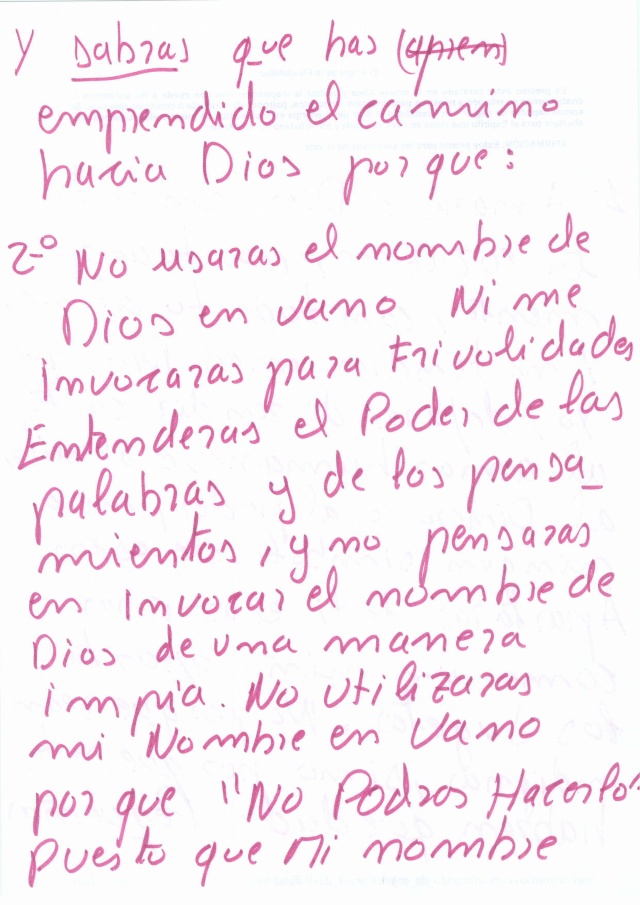 Y sabras que has (apren)
emprendido el camino
hacia Dios por que:
2º No usaras el nombre de
Dios en vano Ni me
invocaras para Frivolidades
Entenderas el Poder de las
palabras y de los pensa_
mientos, y no pensaras
en invocar el nombre de
Dios de una manera
impia. No utilizaras
mi Nombre en Vano
por que "No Podras Hacerlo"
puesto que Mi nombre